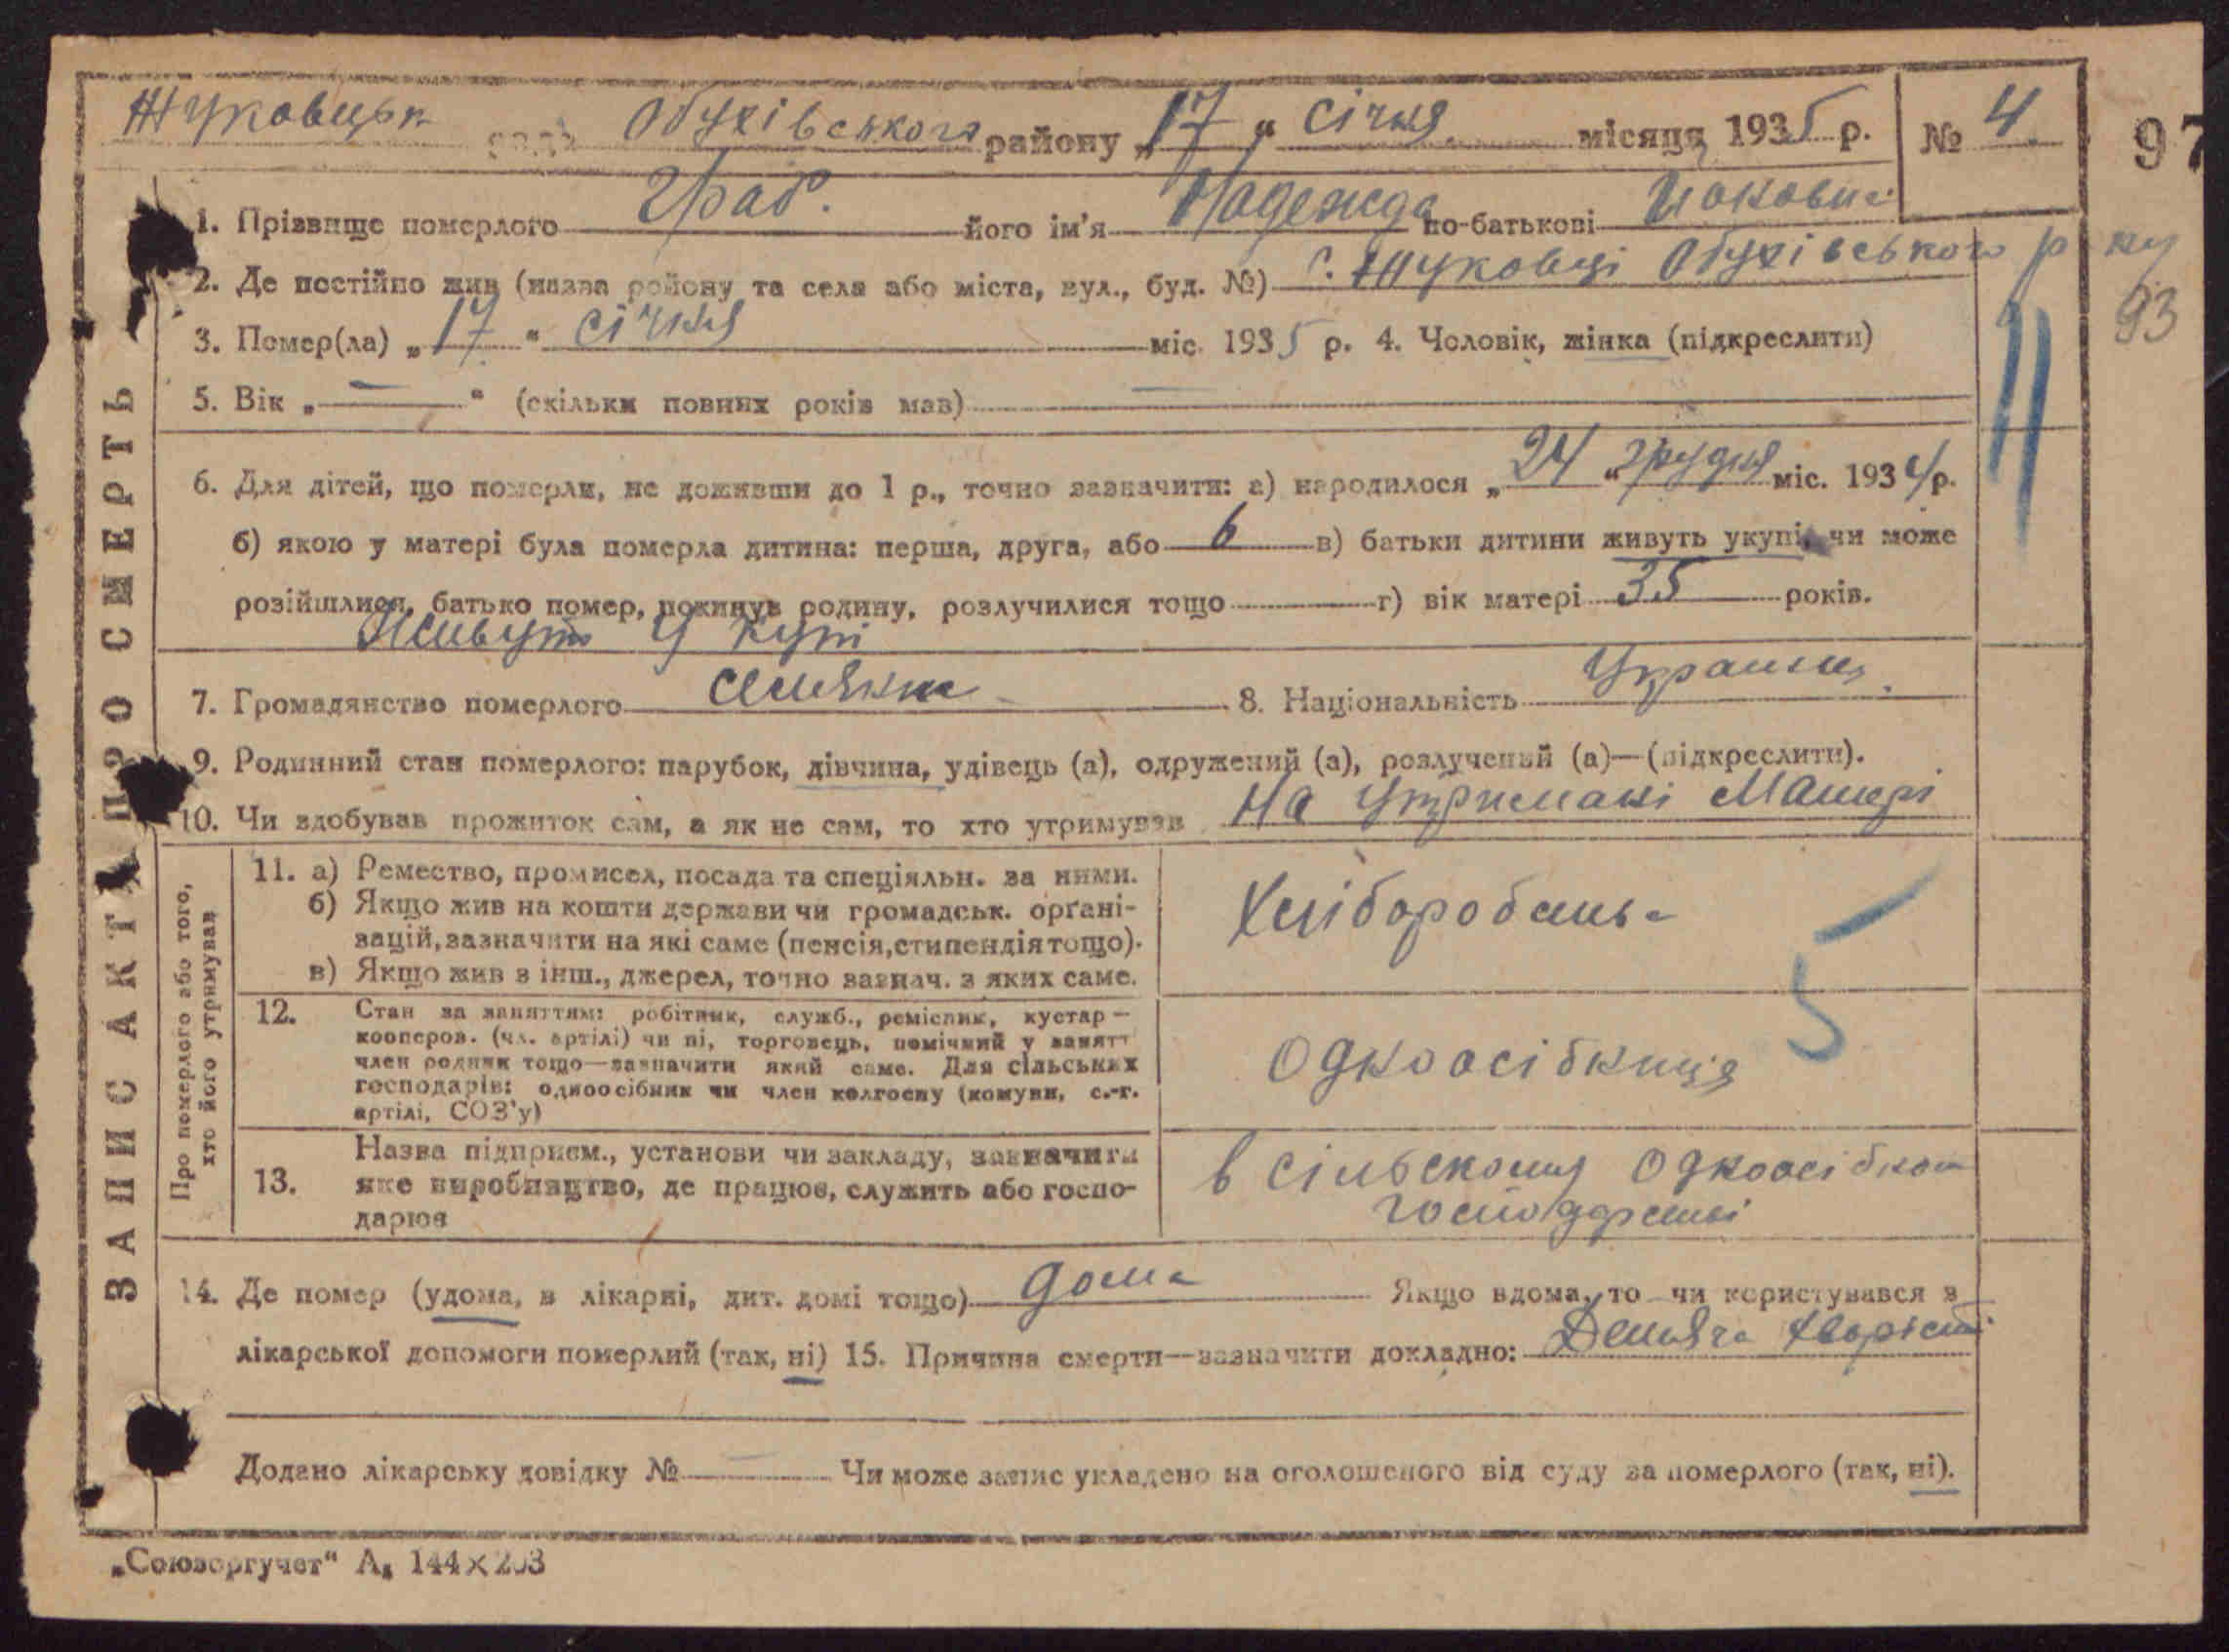 Жуковцьк Обухівського району „17“ січня місяця 1935 р. № 4.
97
1. Прізвище померлого Граб. його ім'я Надежда по-батькові
2. Де постійно жив (назва району та села або міста, вул., буд. №) с. Жуковці Обухівського р-ну
93
3. Помер(ла) „17“ січня міс. 1935 р. 4. Чоловік, жінка (підкреслити)
5. Вік „—“ (скільки повних років мав) —
6. Для дітей, що померли, не доживши до 1 р., точно зазначити: а) народилося „24“ грудня міс. 1934 р.
б) якою у матері була померла дитина: перша, друга, або 6 в) батьки дитини живуть укупі, чи може
розійшлися, батько помер, покинув родину, розлучилися тощо г) вік матері 35 років.
Живуть у купі
7. Громадянство померлого 8. Національність
9. Родинний стан померлого: парубок, дівчина, удівець (а), одружений (а), розлучений (а)—(підкреслити).
10. Чи здобував прожиток сам, а як не сам, то хто утримував На утримані Матері
ЗАПИС АКТА ПРО СМЕРТЬ
Про померлого або того,
хто його утримував
11. а) Ремество, промисел, посада та спеціяльн. за ними.
б) Якщо жив на кошти держави чи громадськ. орґані-
зацій, зазначити на які саме (пенсія, стипендія тощо).
в) Якщо жив з інш., джерел, точно зазнач. з яких саме.
5
12. Стан за заняттям: робітник, служб., ремісник, кустар—
кооперов. (чл. артілі) чи ні, торговець, помічний у занятт
член родини тощо—зазначити який саме. Для сільських
господарів: одноосібник чи член колгоспу (комуни, с.-г.
артілі, СОЗ'у)
Одноосібниця
13. Назва підприєм., установи чи закладу, зазначити
яке виробництво, де працює, служить або госпо-
дарює
в сільскому
14. Де помер (удома, в лікарні, дит. домі тощо) дома Якщо вдома, то чи користувався з
лікарської допомоги померлий (так, ні) 15. Причина смерти—зазначити докладно:
Додано лікарську довідку № — Чи може запис укладено на оголошеного від суду за померлого (так, ні).
„Союзоргучет“ А₅ 144×203